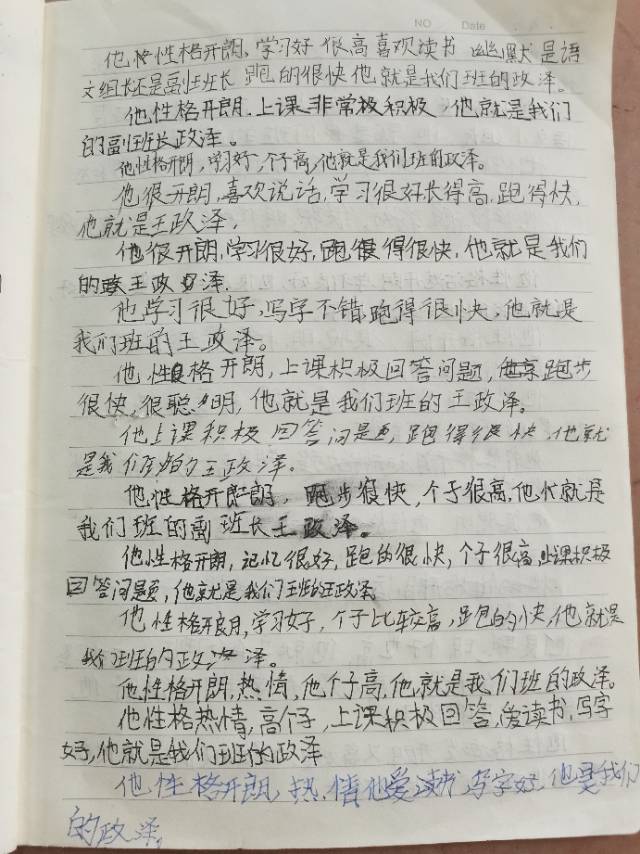 NO Date
他性格开朗,学习好 很高喜欢读书 幽默是语
文组长还是副班长 跑的很快他就是我们班的政泽。
他性格开朗.上课非常极积极,他就是我们
的副班长政泽。
他性格开朗,学习好,个子高,他就是我们班的政泽。
他很开朗,喜欢说话,学习很好长得高,跑得快,
他就是王政泽,
他很开朗,学习很好,跑得很快,他就是我们
的王政泽.
他学习很好,写字不错,跑得很快,他就是
我们班的王政泽。
他性格开朗,上课积极回答问题,跑步
很快,很聪明,他就是我们班的王政泽。
他上课积极回答问题,跑得很快,他就
是我们的王政泽。
他性格开朗,跑步很快,个子很高,他就是
我们班的副班长王政泽。
他性格开朗,记忆很好,跑的很快,个子很高,上课积极
回答问题,他就是我们班的王政泽
他性格开朗,学习好,个子比较高,跑的快,他就是
我们班的政泽。
他性格开朗,热情,他个子高,他就是我们班的政泽。
他性格热情,高个子,上课积极回答,爱读书,写字
好,他就是我们班的政泽
他性格开朗,热情他爱读书 写字好,他是我们
的政泽,